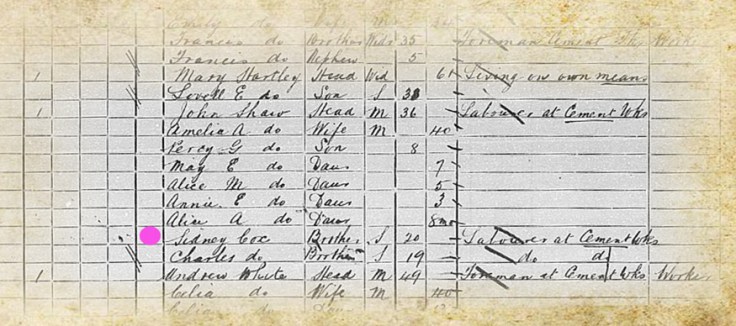 Emily do Wife M 34
Francis do Brother Wdr 35 Foreman Cement Wks Worker
Francis do Nephew 5
1 Mary Hartley Head Wid 61 Living on own means
Lovell E do Son S 38
1 John Shaw Head M 36 Labourer at Cement Wks
Amelia A do Wife M 40
Percy G do Son 8
May E do Daur 7
Alice M do Daur 5
Annie E do Daur 3
Alice A do Daur 8mo
Sidney Cox Brother S 20 Labourer at Cement Wks
Charles do Brother S 19 do do
1 Andrew White Head M 49 Foreman at Cement Wks Worker
Celia do Wife M 40